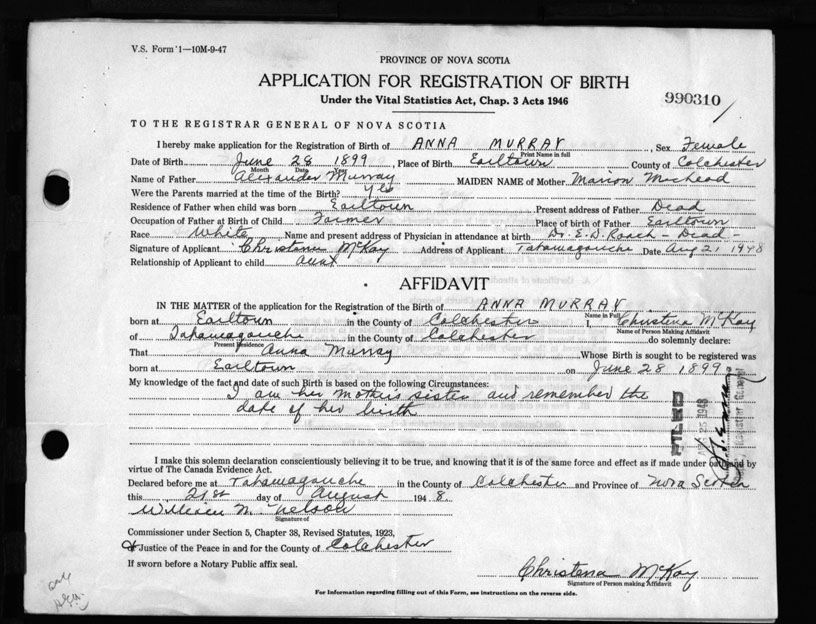 V.S. Form 1—10M-9-47
PROVINCE OF NOVA SCOTIA
APPLICATION FOR REGISTRATION OF BIRTH
Under the Vital Statistics Act, Chap. 3 Acts 1946
990310
TO THE REGISTRAR GENERAL OF NOVA SCOTIA
I hereby make application for the Registration of Birth of ANNA MURRAY, Sex Female
Print Name in full
Date of Birth June 28 1899, Place of Birth Earltown County of Colchester
Month Date Year
Name of Father Alexander Murray MAIDEN NAME of Mother Marion MacLeod
Were the Parents married at the time of the Birth? Yes
Residence of Father when child was born Earltown Present address of Father Dead
Occupation of Father at Birth of Child Farmer Place of birth of Father Earltown
Race White Name and present address of Physician in attendance at birth Dr. E. D. Roach - Dead -
Signature of Applicant Christena McKay Address of Applicant Tatamagouche Date Aug 21 1948
Relationship of Applicant to child aunt
AFFIDAVIT
IN THE MATTER of the application for the Registration of the Birth of ANNA MURRAY
Name in Full
born at Earltown in the County of Colchester I, Christena McKay
Name of Person Making Affidavit
of Tatamagouche in the County of Colchester do solemnly declare:
Present Residence
That Anna Murray Whose Birth is sought to be registered was
born at Earltown on June 28 1899
My knowledge of the fact and date of such Birth is based on the following Circumstances:
I am her mother's sister and remember the
date of her birth
FILED
25 1948
Registrar General
I make this solemn declaration conscientiously believing it to be true, and knowing that it is of the same force and effect as if made under oath and by
virtue of The Canada Evidence Act.
Declared before me at Tatamagouche in the County of Colchester and Province of Nova Scotia
this 21st day of August 1948.
William M. Nelson
Signature of
Commissioner under Section 5, Chapter 38, Revised Statutes, 1923,
Justice of the Peace in and for the County of Colchester
If sworn before a Notary Public affix seal.
Christena McKay
Signature of Person making Affidavit
For Information regarding filling out of this Form, see instructions on the reverse side.